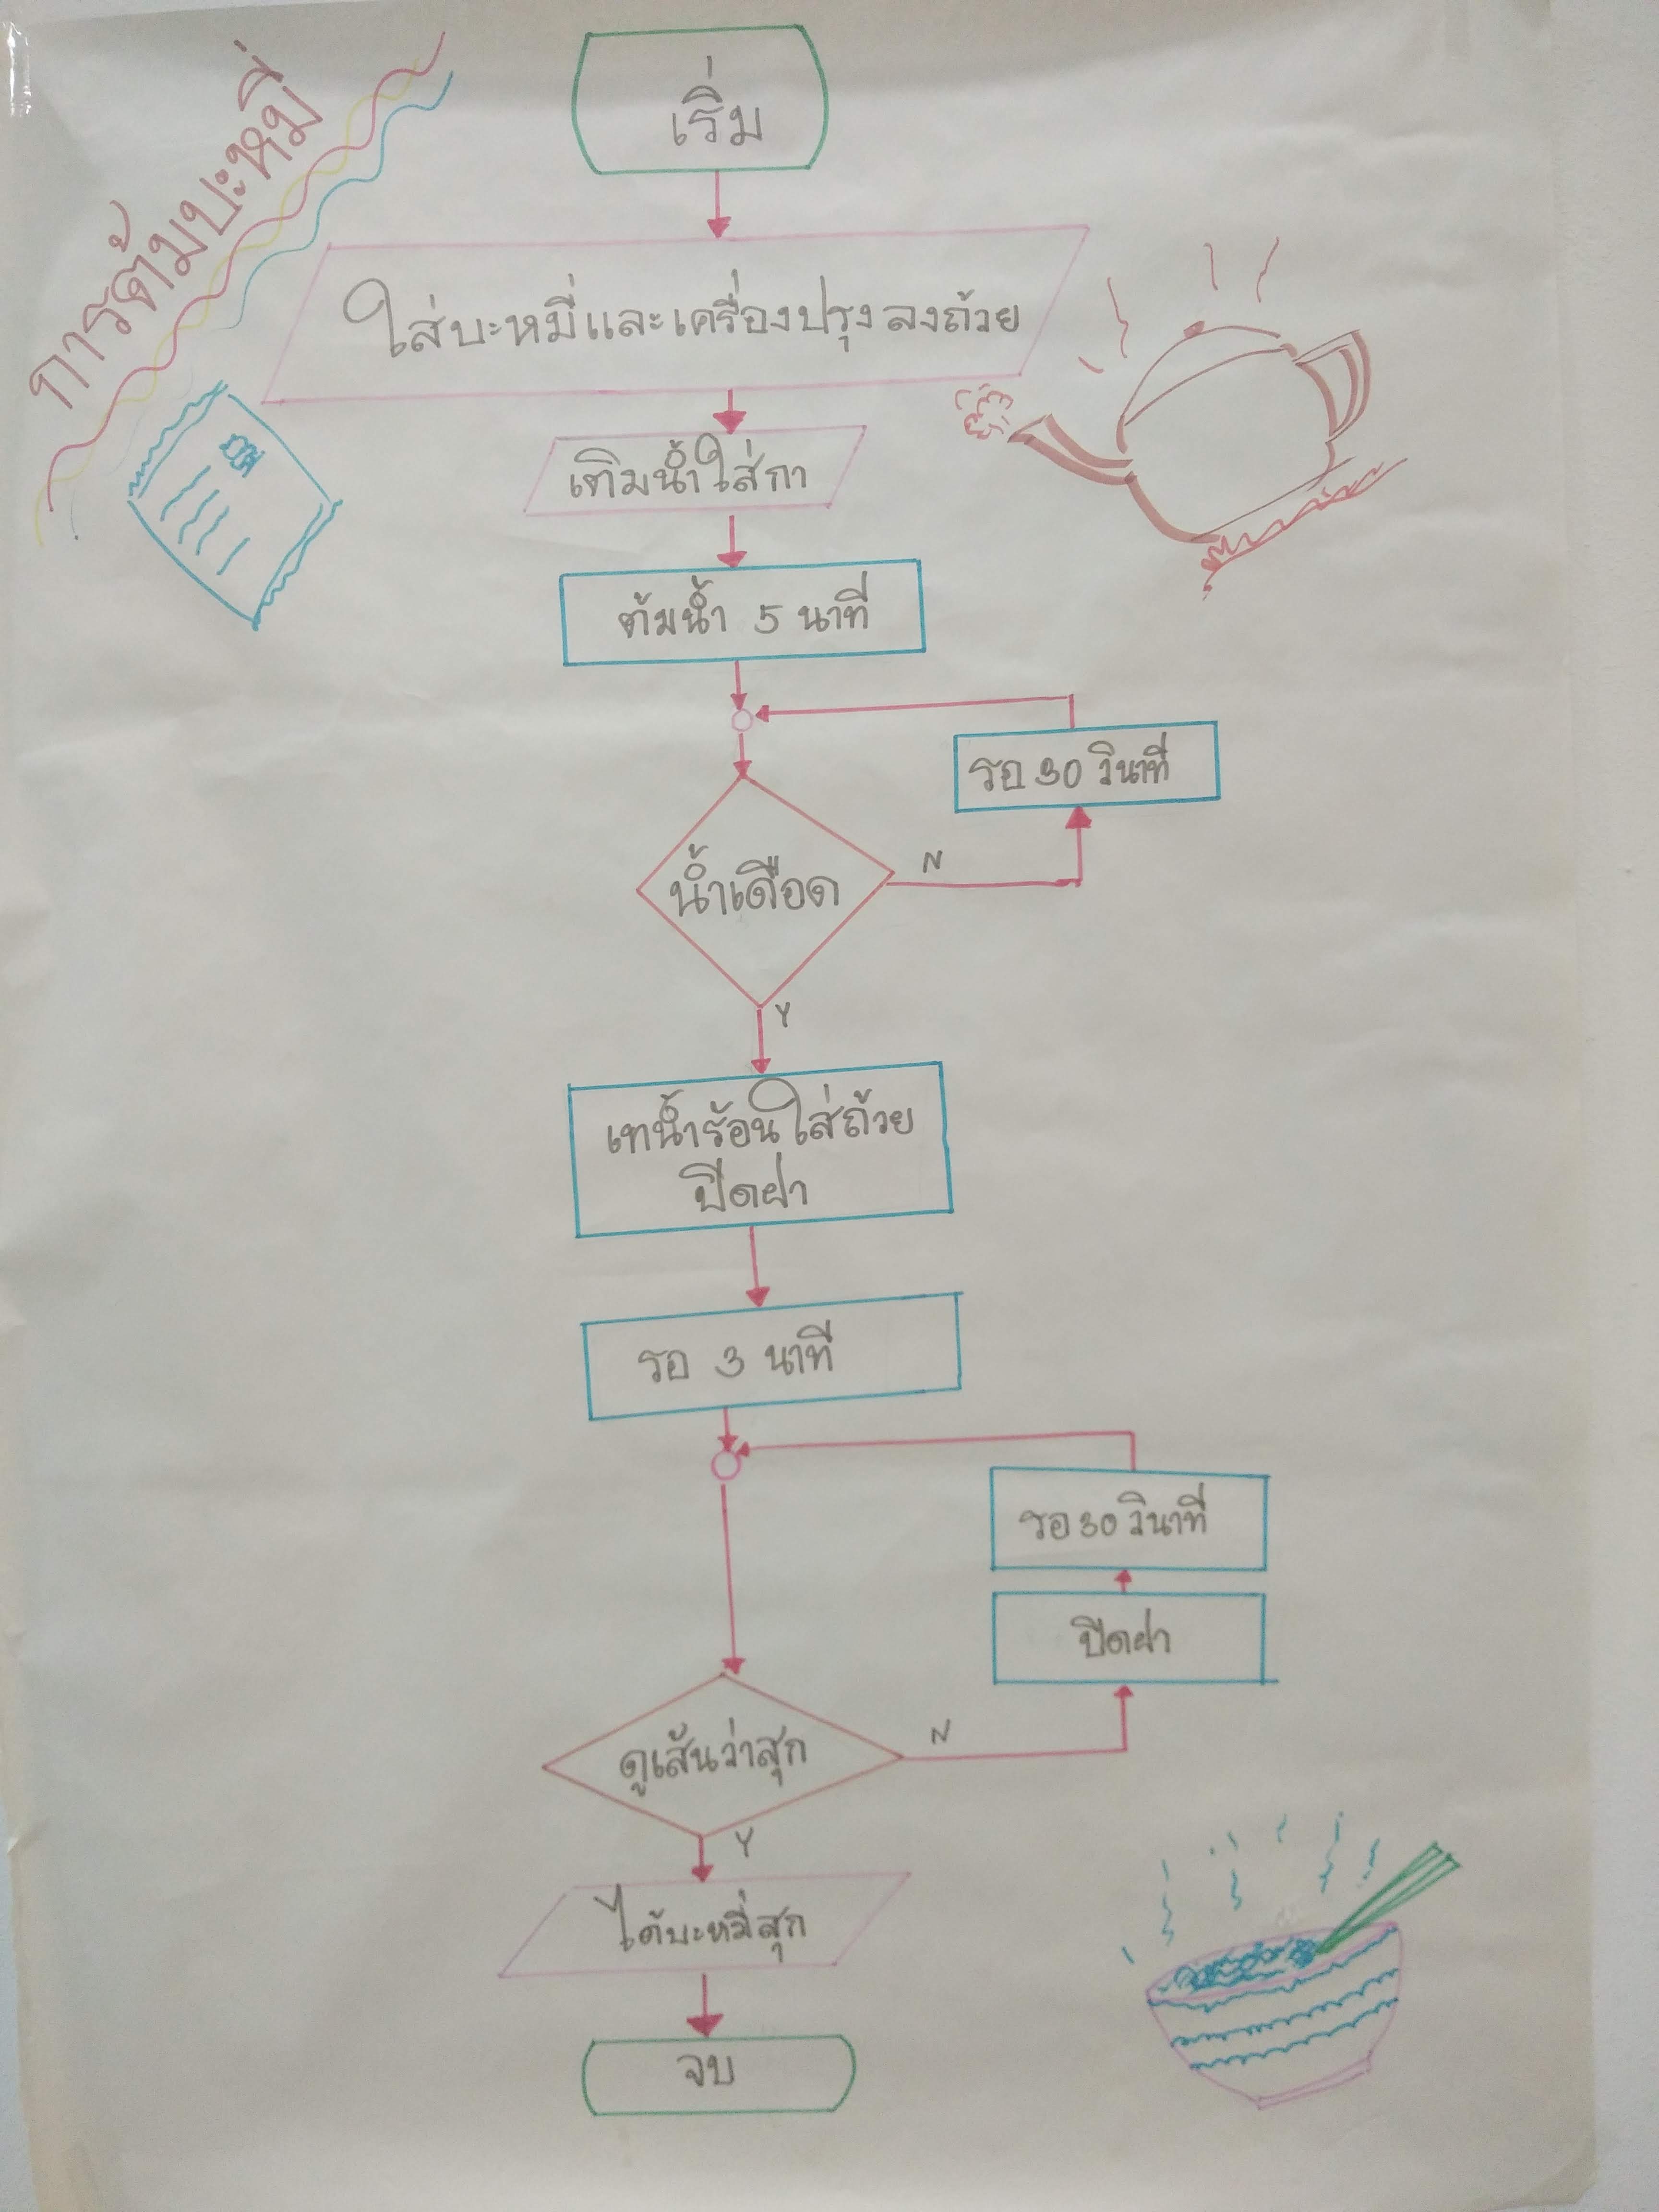 การต้มบะหมี่
เริ่ม
ใส่บะหมี่และเครื่องปรุงลงถ้วย
เติมน้ำใส่กา
ต้มน้ำ 5 นาที
รอ 30 วินาที
น้ำเดือด
N
Y
เทน้ำร้อนใส่ถ้วย
ปิดฝา
รอ 3 นาที
รอ 30 วินาที
ปิดฝา
ดูเส้นว่าสุก
N
Y
ได้บะหมี่สุก
จบ